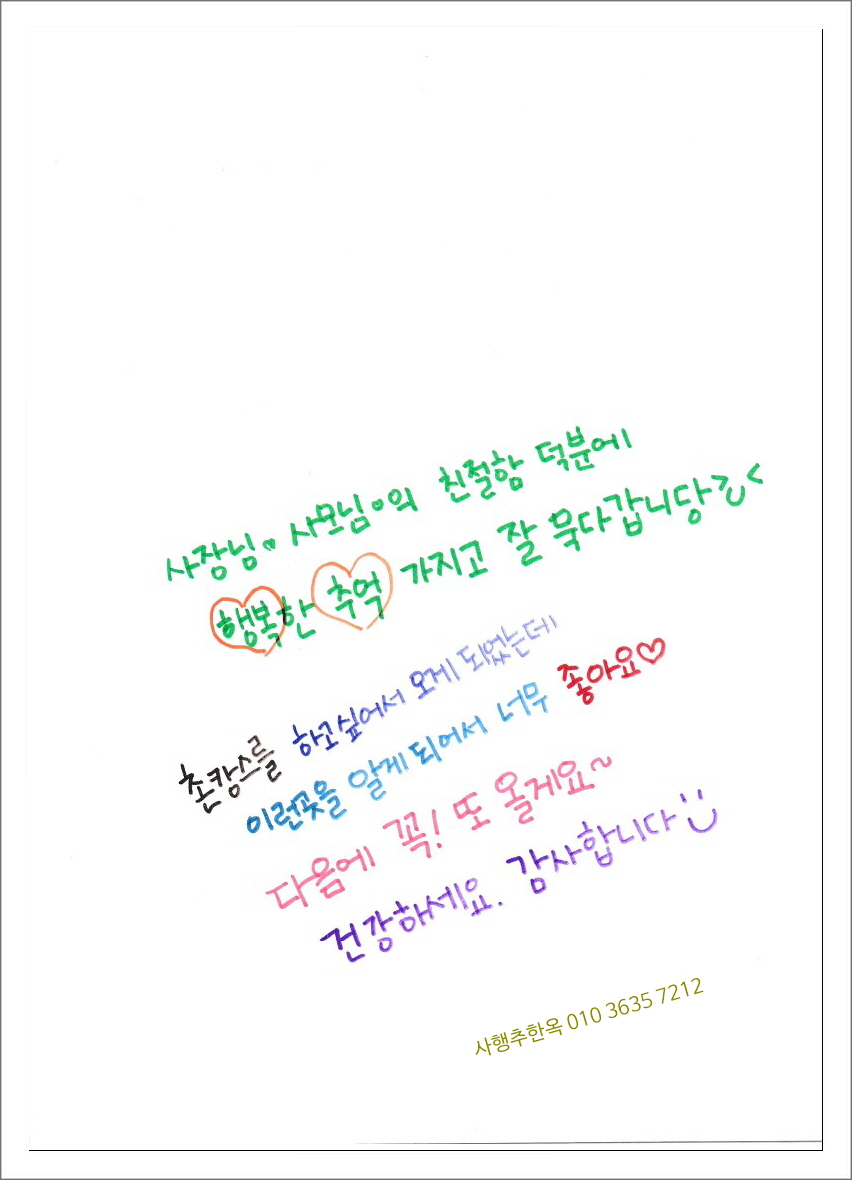 사장님♥ 사모님♥의 친절함 덕분에
행복한 추억 가지고 잘 묵다갑니당 >ㅁ<
촌캉스를 하고싶어서 오게 되었는데
이런곳을 알게 되어서 너무 좋아요♡
다음에 꼭! 또 올게요~
건강하세요. 감사합니다 :)
사행추한옥 010 3635 7212